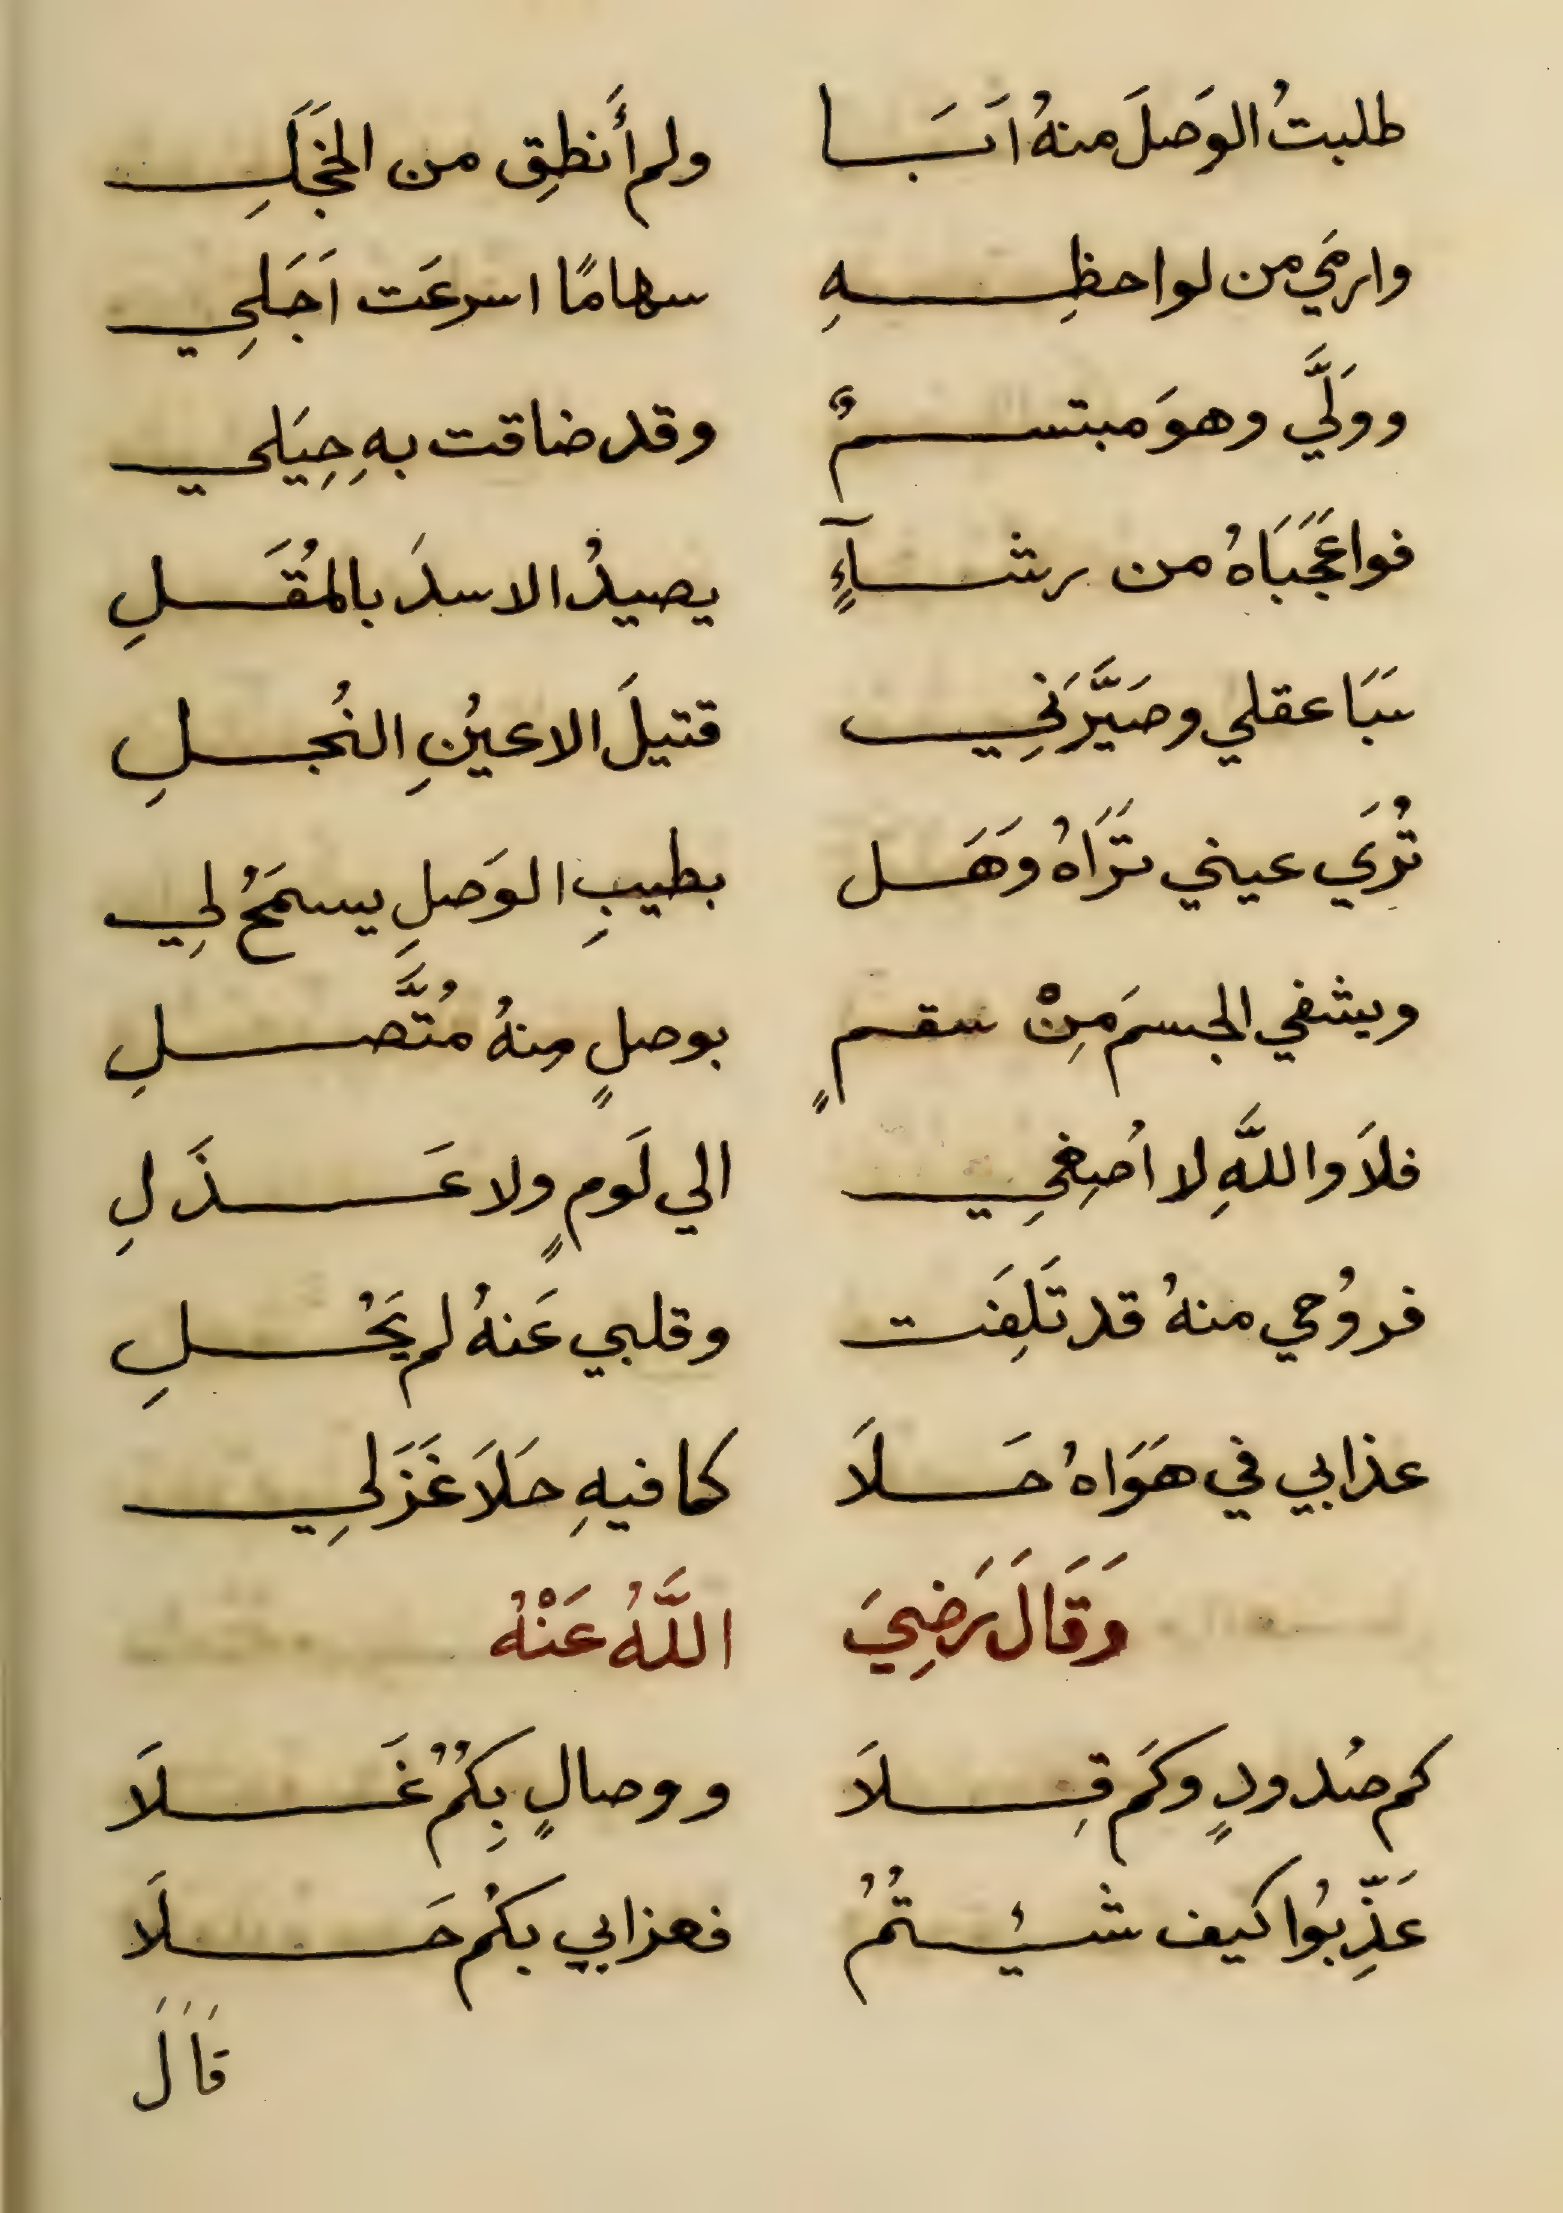 طلبتُ الوَصلَ منهُ اَبَا ولم أَنطِق من الخَجَلِ
وارمَي من لواحظِهِ سهامًا اسرعَت اَجَلِي
وولَّي وهوَ مبتسمٌ وقد ضاقت بهِ حِيَلي
فواعَجَبَاهُ من رشآءٍ يصيدُ الاسدَ بالمُقَلِ
سَبَا عقلي وصَيَّرَنِي قتيلَ الاعيُنِ النُجلِ
تُرَي عيني تَرَاهُ وَهَل بطيبِ الوَصلِ يسمَحُ لِي
ويشفي الجسمَ مِنْ سقمٍ بوصلٍ مِنهُ مُتَّصلِ
فلاَ واللَّهِ لا اُصِغِي الي لَومٍ ولا عَذَلِ
فروُحي منهُ قد تَلِفَت وقلبي عَنهُ لم يَحُلِ
عذابي في هَوَاهُ حَلاَ كما فيهِ حَلاَ غَزَلِي
وَقَالَ رَضِيَ اللَّهُ عَنْهُ
كم صُدودٍ وكَم قِلاَ ووصالٍ بِكُمُ غَلاَ
عَذِّبوُا كيف شئيتُمُ فعزابي بكُم حَلاَ
قَالَ